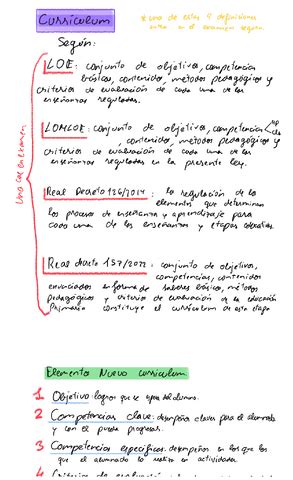 Curriculum
* una de estas 4 definiciones
entra en el examen seguro
Según:
LOE: conjunto de objetivos, competencias
básicas, contenidos, métodos pedagógicos y
criterios de evaluación de cada una de las
enseñanzas reguladas.
LOMLOE: conjunto de objetivos, competencias
, contenidos, métodos pedagógicos y
criterios de evaluación de cada una de las
enseñanzas reguladas en la presente Ley.
Uno cae en examen
Real Decreto 126/2014: la regulación de los
elementos que determinan
los procesos de enseñanza y aprendizaje para
cada una de las enseñanzas y etapas educativas.
Real decreto 157/2022: conjunto de objetivos,
competencias, contenidos
enunciados en forma de saberes básicos, métodos
pedagógicos y criterios de evaluación de la educación
Primaria constituye el currículum de esta etapa
Elementos Nuevo curriculum
1 Objetivo: logros que se espera del alumno.
2 Competencias clave: desempeños claves para el alumnado
y con el pueda progresar.
3 Competencias específicas: desempeños en los que los
que el alumnado lo realiza en actividades.
4 Criterios de evaluación